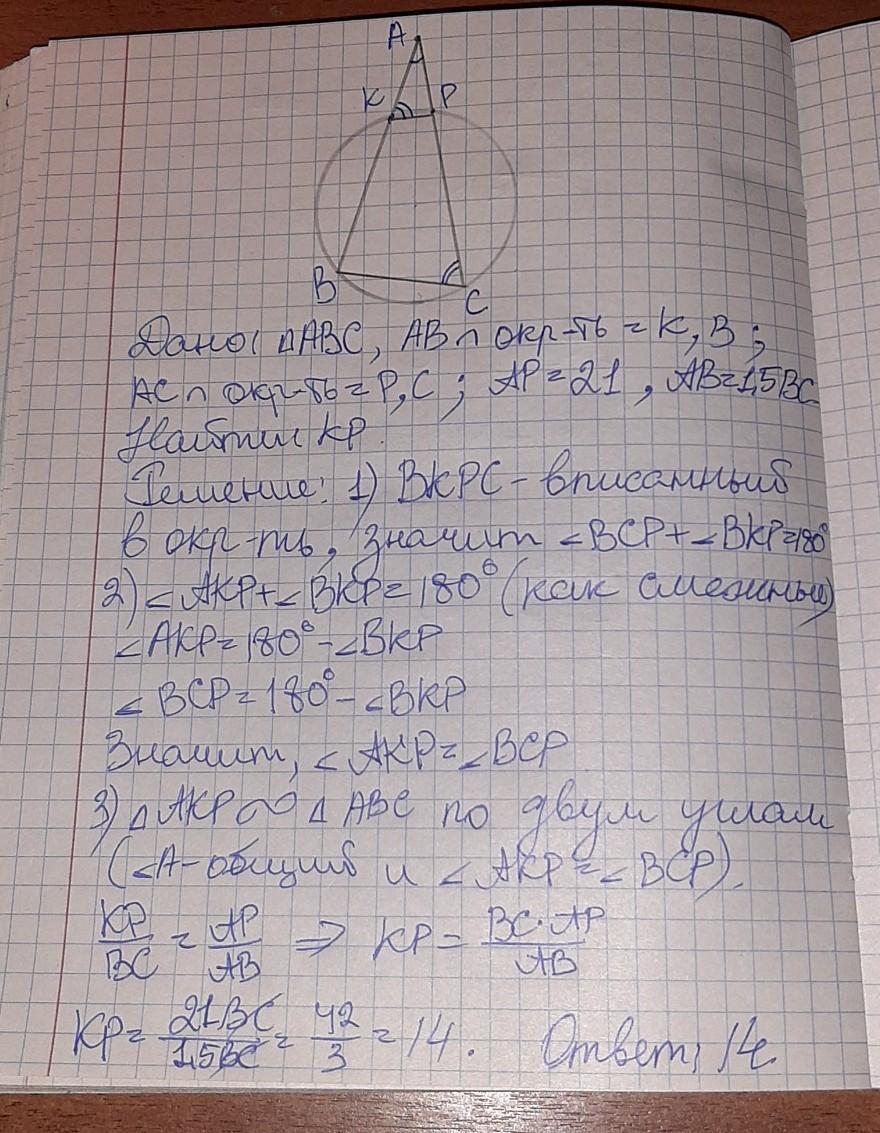 A
K P
B
C
Дано: △ABC, AB ∩ окр-ть = K, B;
AC ∩ окр-ть = P, C; AP = 21, AB = 1,5BC
Найти KP.
Решение: 1) BKPC - вписанный
в окр-ть, значит ∠BCP + ∠BKP = 180°
2) ∠AKP + ∠BKP = 180° (как смежные)
∠AKP = 180° - ∠BKP
∠BCP = 180° - ∠BKP
Значит, ∠AKP = ∠BCP
3) △AKP ∽ △ABC по двум углам
(∠A - общий и ∠AKP = ∠BCP).
KP/BC = AP/AB ⇒ KP = BC·AP/AB
KP = 21BC/1,5BC = 42/3 = 14. Ответ: 14.